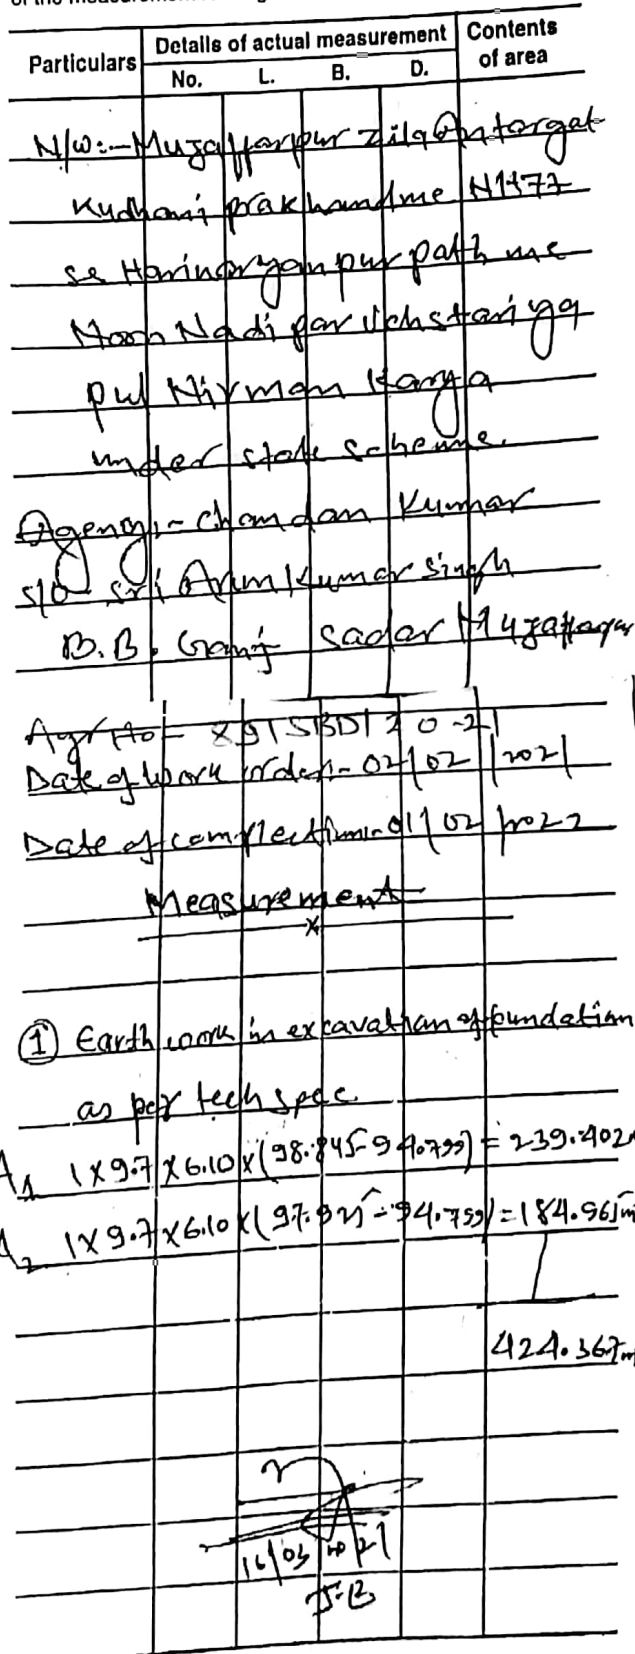 Particulars Details of actual measurement Contents of area
No. L. B. D.
N/w:- Muzaffarpur zila Antargat
Kudhani prakhand me NH77
se Harinarayanpur path me
Noon Nadi par Uchstariya
pul Nirman Karya
under state scheme.
Agency:- Chandan Kumar
s/o sri Arun Kumar Singh
B.B. Ganj Sadar Muzaffarpur
Agr No- 89/SBD/20-21
Date of work order:- 02/02/2021
Date of complection:- 01/02/2022
Measurement
x
① Earth work in excavation of foundation
as per tech spec
A1 1x9.7x6.10x(98.845-94.799) = 239.402m
A2 1x9.7x6.10x(97.925-94.799) = 184.965m
424.367m
16/03/2021
J.E